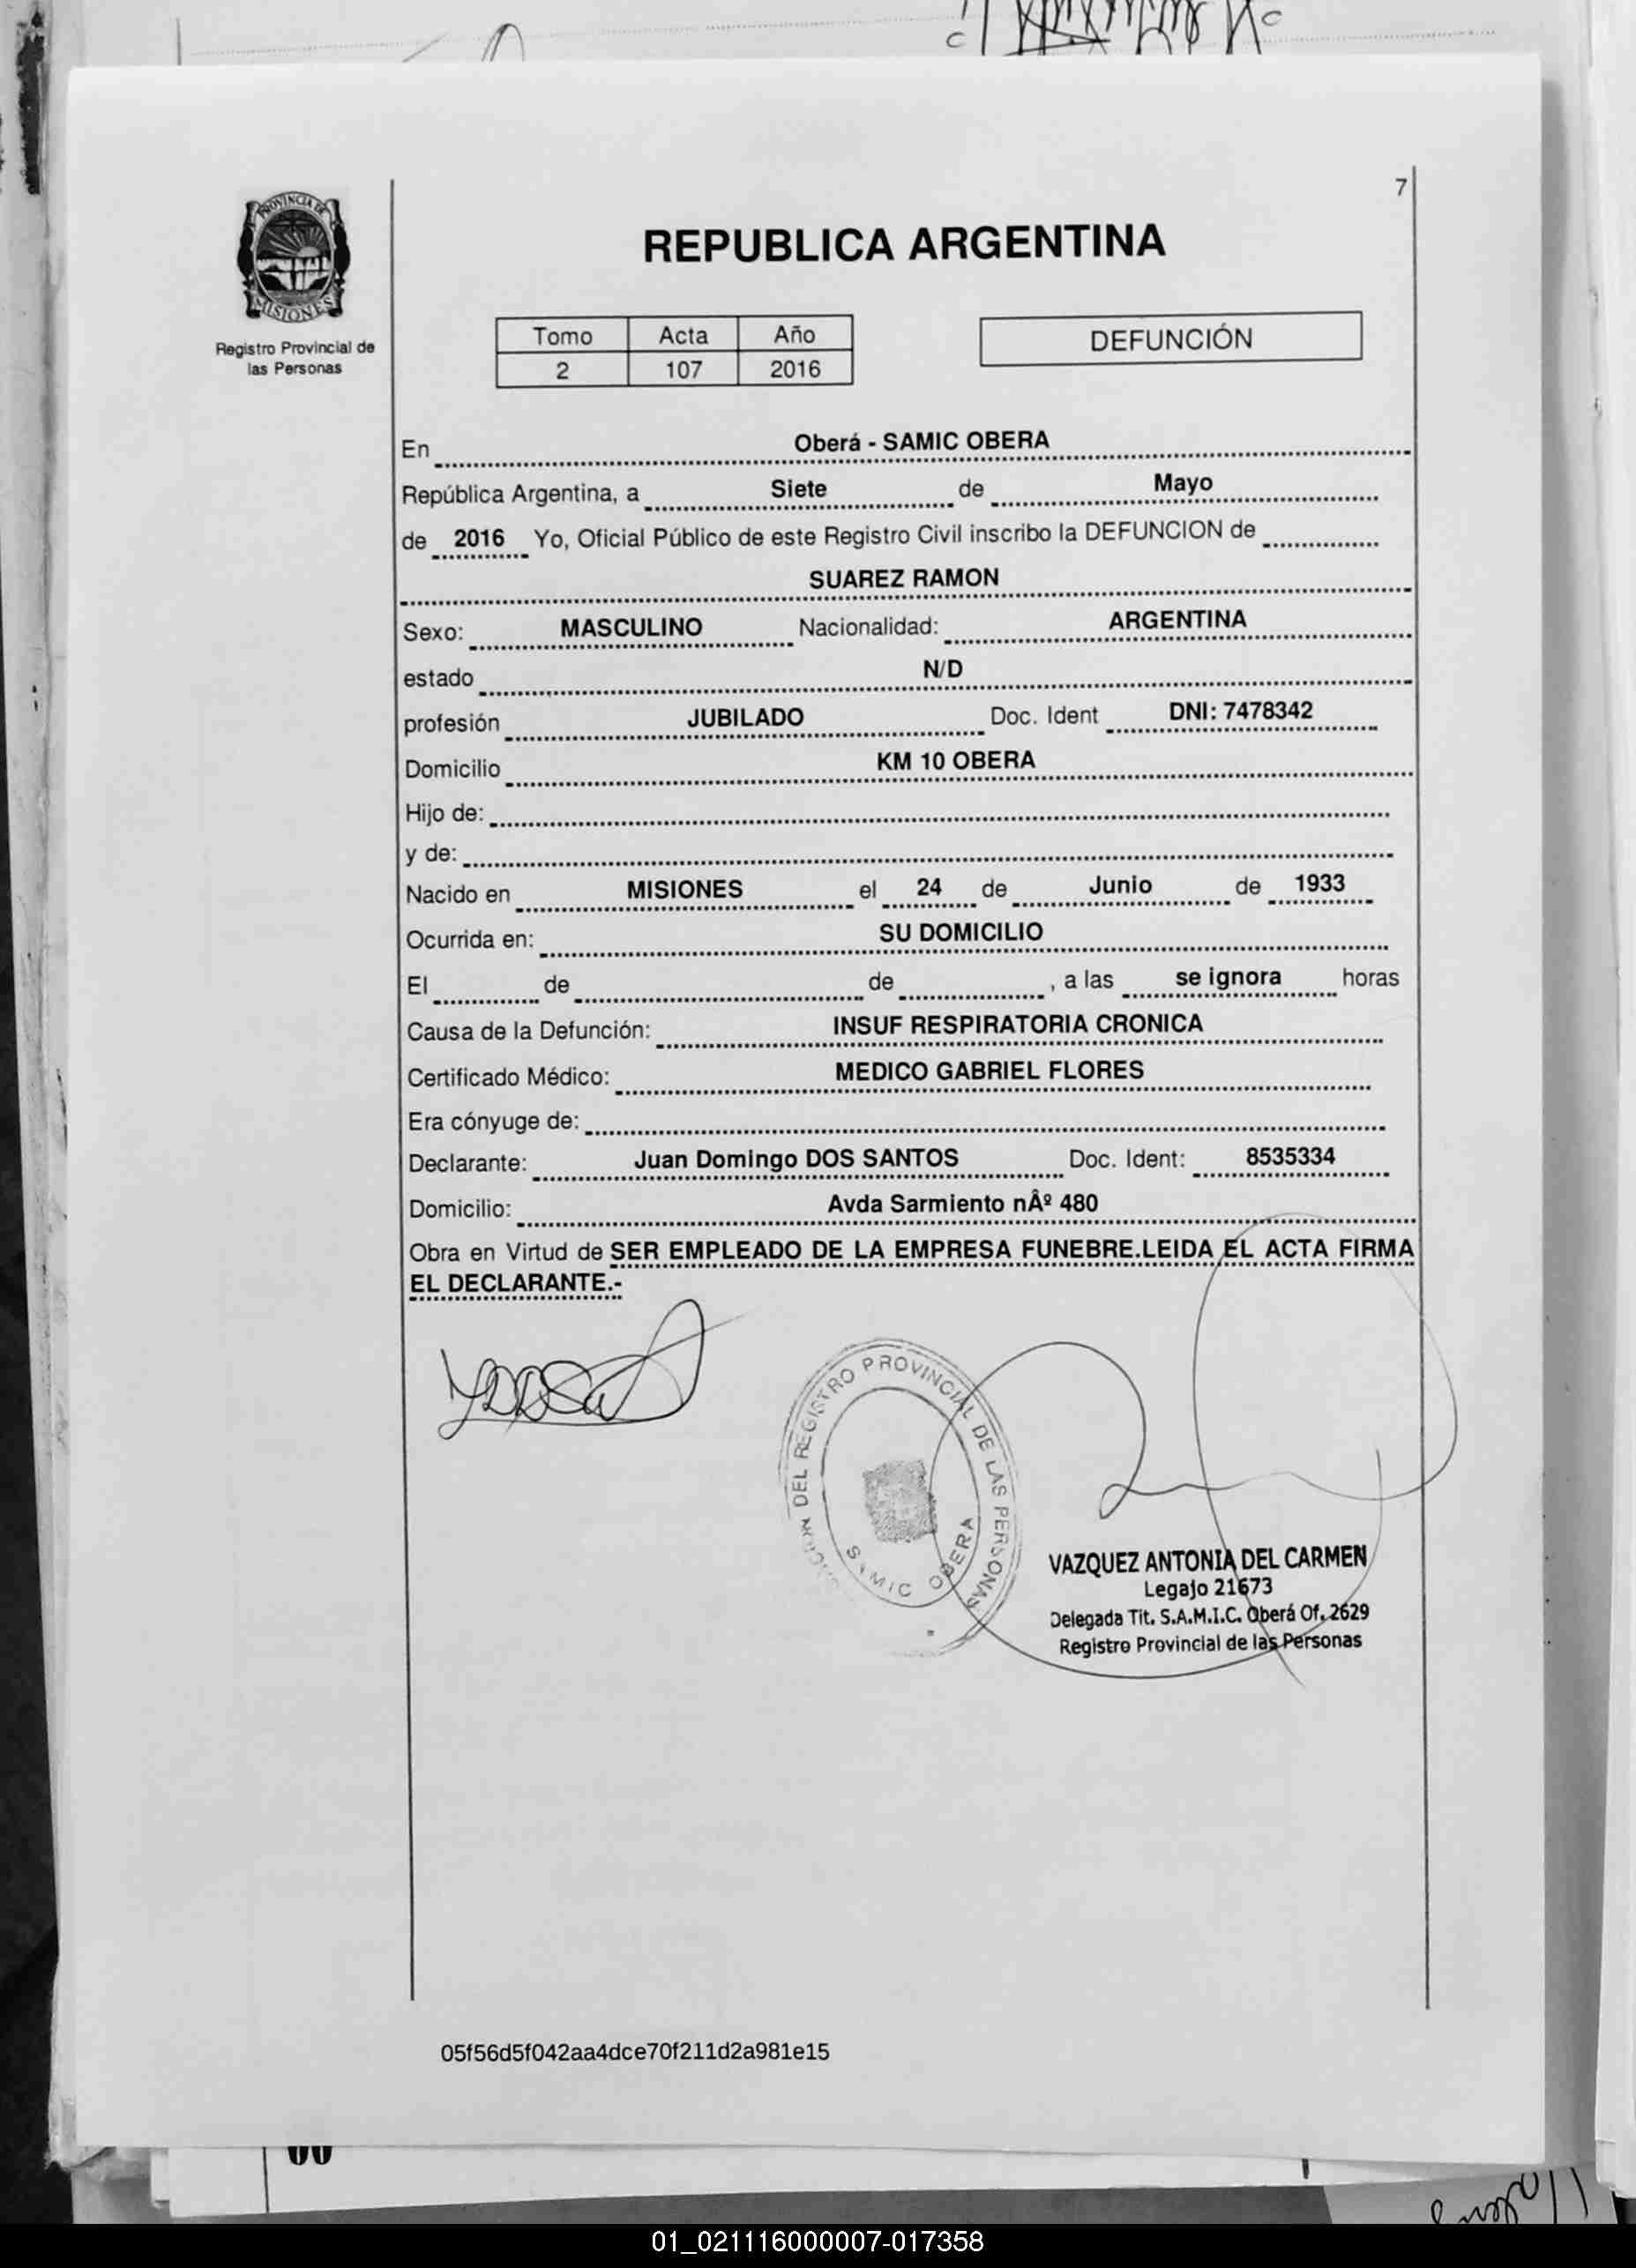 7
PROVINCIA DE
MISIONES
Registro Provincial de
las Personas
REPUBLICA ARGENTINA
Tomo Acta Año
2 107 2016
DEFUNCIÓN
En Oberá - SAMIC OBERA
República Argentina, a Siete de Mayo
de 2016 Yo, Oficial Público de este Registro Civil inscribo la DEFUNCION de
SUAREZ RAMON
Sexo: MASCULINO Nacionalidad: ARGENTINA
estado N/D
profesión JUBILADO Doc. Ident DNI: 7478342
Domicilio KM 10 OBERA
Hijo de:
y de:
Nacido en MISIONES el 24 de Junio de 1933
Ocurrida en: SU DOMICILIO
El de de , a las se ignora horas
Causa de la Defunción: INSUF RESPIRATORIA CRONICA
Certificado Médico: MEDICO GABRIEL FLORES
Era cónyuge de:
Declarante: Juan Domingo DOS SANTOS Doc. Ident: 8535334
Domicilio: Avda Sarmiento nÂº 480
Obra en Virtud de SER EMPLEADO DE LA EMPRESA FUNEBRE.LEIDA EL ACTA FIRMA
EL DECLARANTE.-
DEL REGISTRO PROVINCIAL DE LAS PERSONAS
SAMIC OBERA
VAZQUEZ ANTONIA DEL CARMEN
Legajo 21673
Delegada Tit. S.A.M.I.C. Oberá Of. 2629
Registro Provincial de las Personas
05f56d5f042aa4dce70f211d2a981e15
01_021116000007-017358